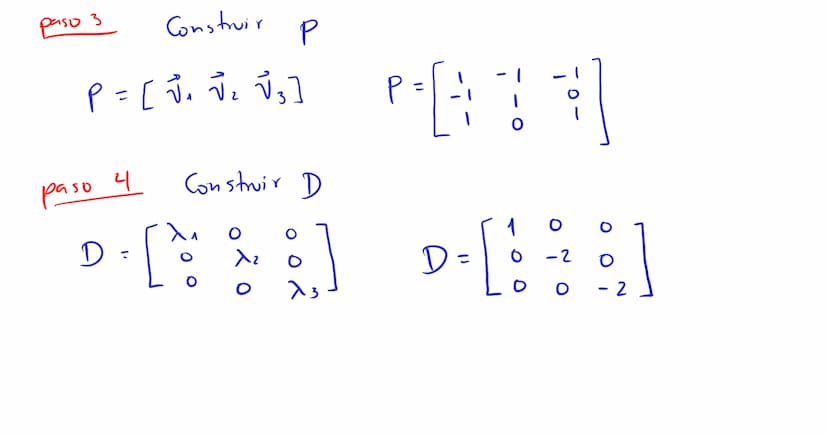 paso 3 Construir P
P = [ v⃗₁ v⃗₂ v⃗₃ ] P = [ 1 -1 -1
-1 1 0
1 0 1 ]
paso 4 Construir D
D = [ λ₁ 0 0
0 λ₂ 0
0 0 λ₃ ] D = [ 1 0 0
0 -2 0
0 0 -2 ]